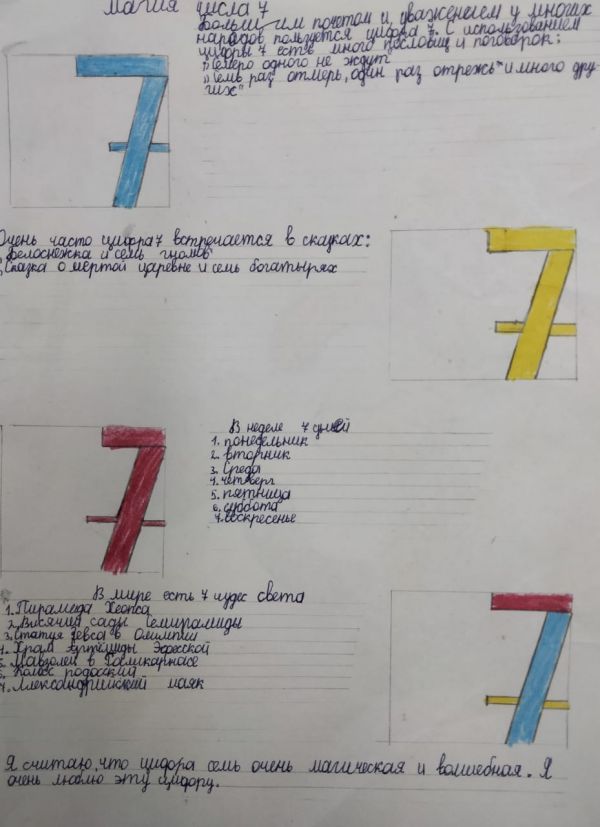 Магия числа 7
Большим почетом и уважением у многих
народов пользуется цифра 7. С использованием
цифры 7 есть много пословиц и поговорок:
„Семеро одного не ждут
„Семь раз отмерь, один раз отрежь" и много дру-
гих"
7
Очень часто цифра 7 встречается в сказках:
„Белоснежка и семь гномов"
„Сказка о мертой царевне и семь богатырях
7
В неделе 7 дней
1. понедельник
2. вторник
3. Среда
4. четверг
5. пятница
6. суббота
7. воскресенье
7
В мире есть 7 чудес света
1. Пирамида Хеопса
2. Висячие сады Семирамиды
3. Статуя Зевса в Олимпии
4. Храм Артемиды Эфесской
5. Мавзолей в Галикарнасе
6. Колос родосский
7. Александрийский маяк
7
Я считаю, что цифра семь очень магическая и волшебная. Я
очень люблю эту цифру.